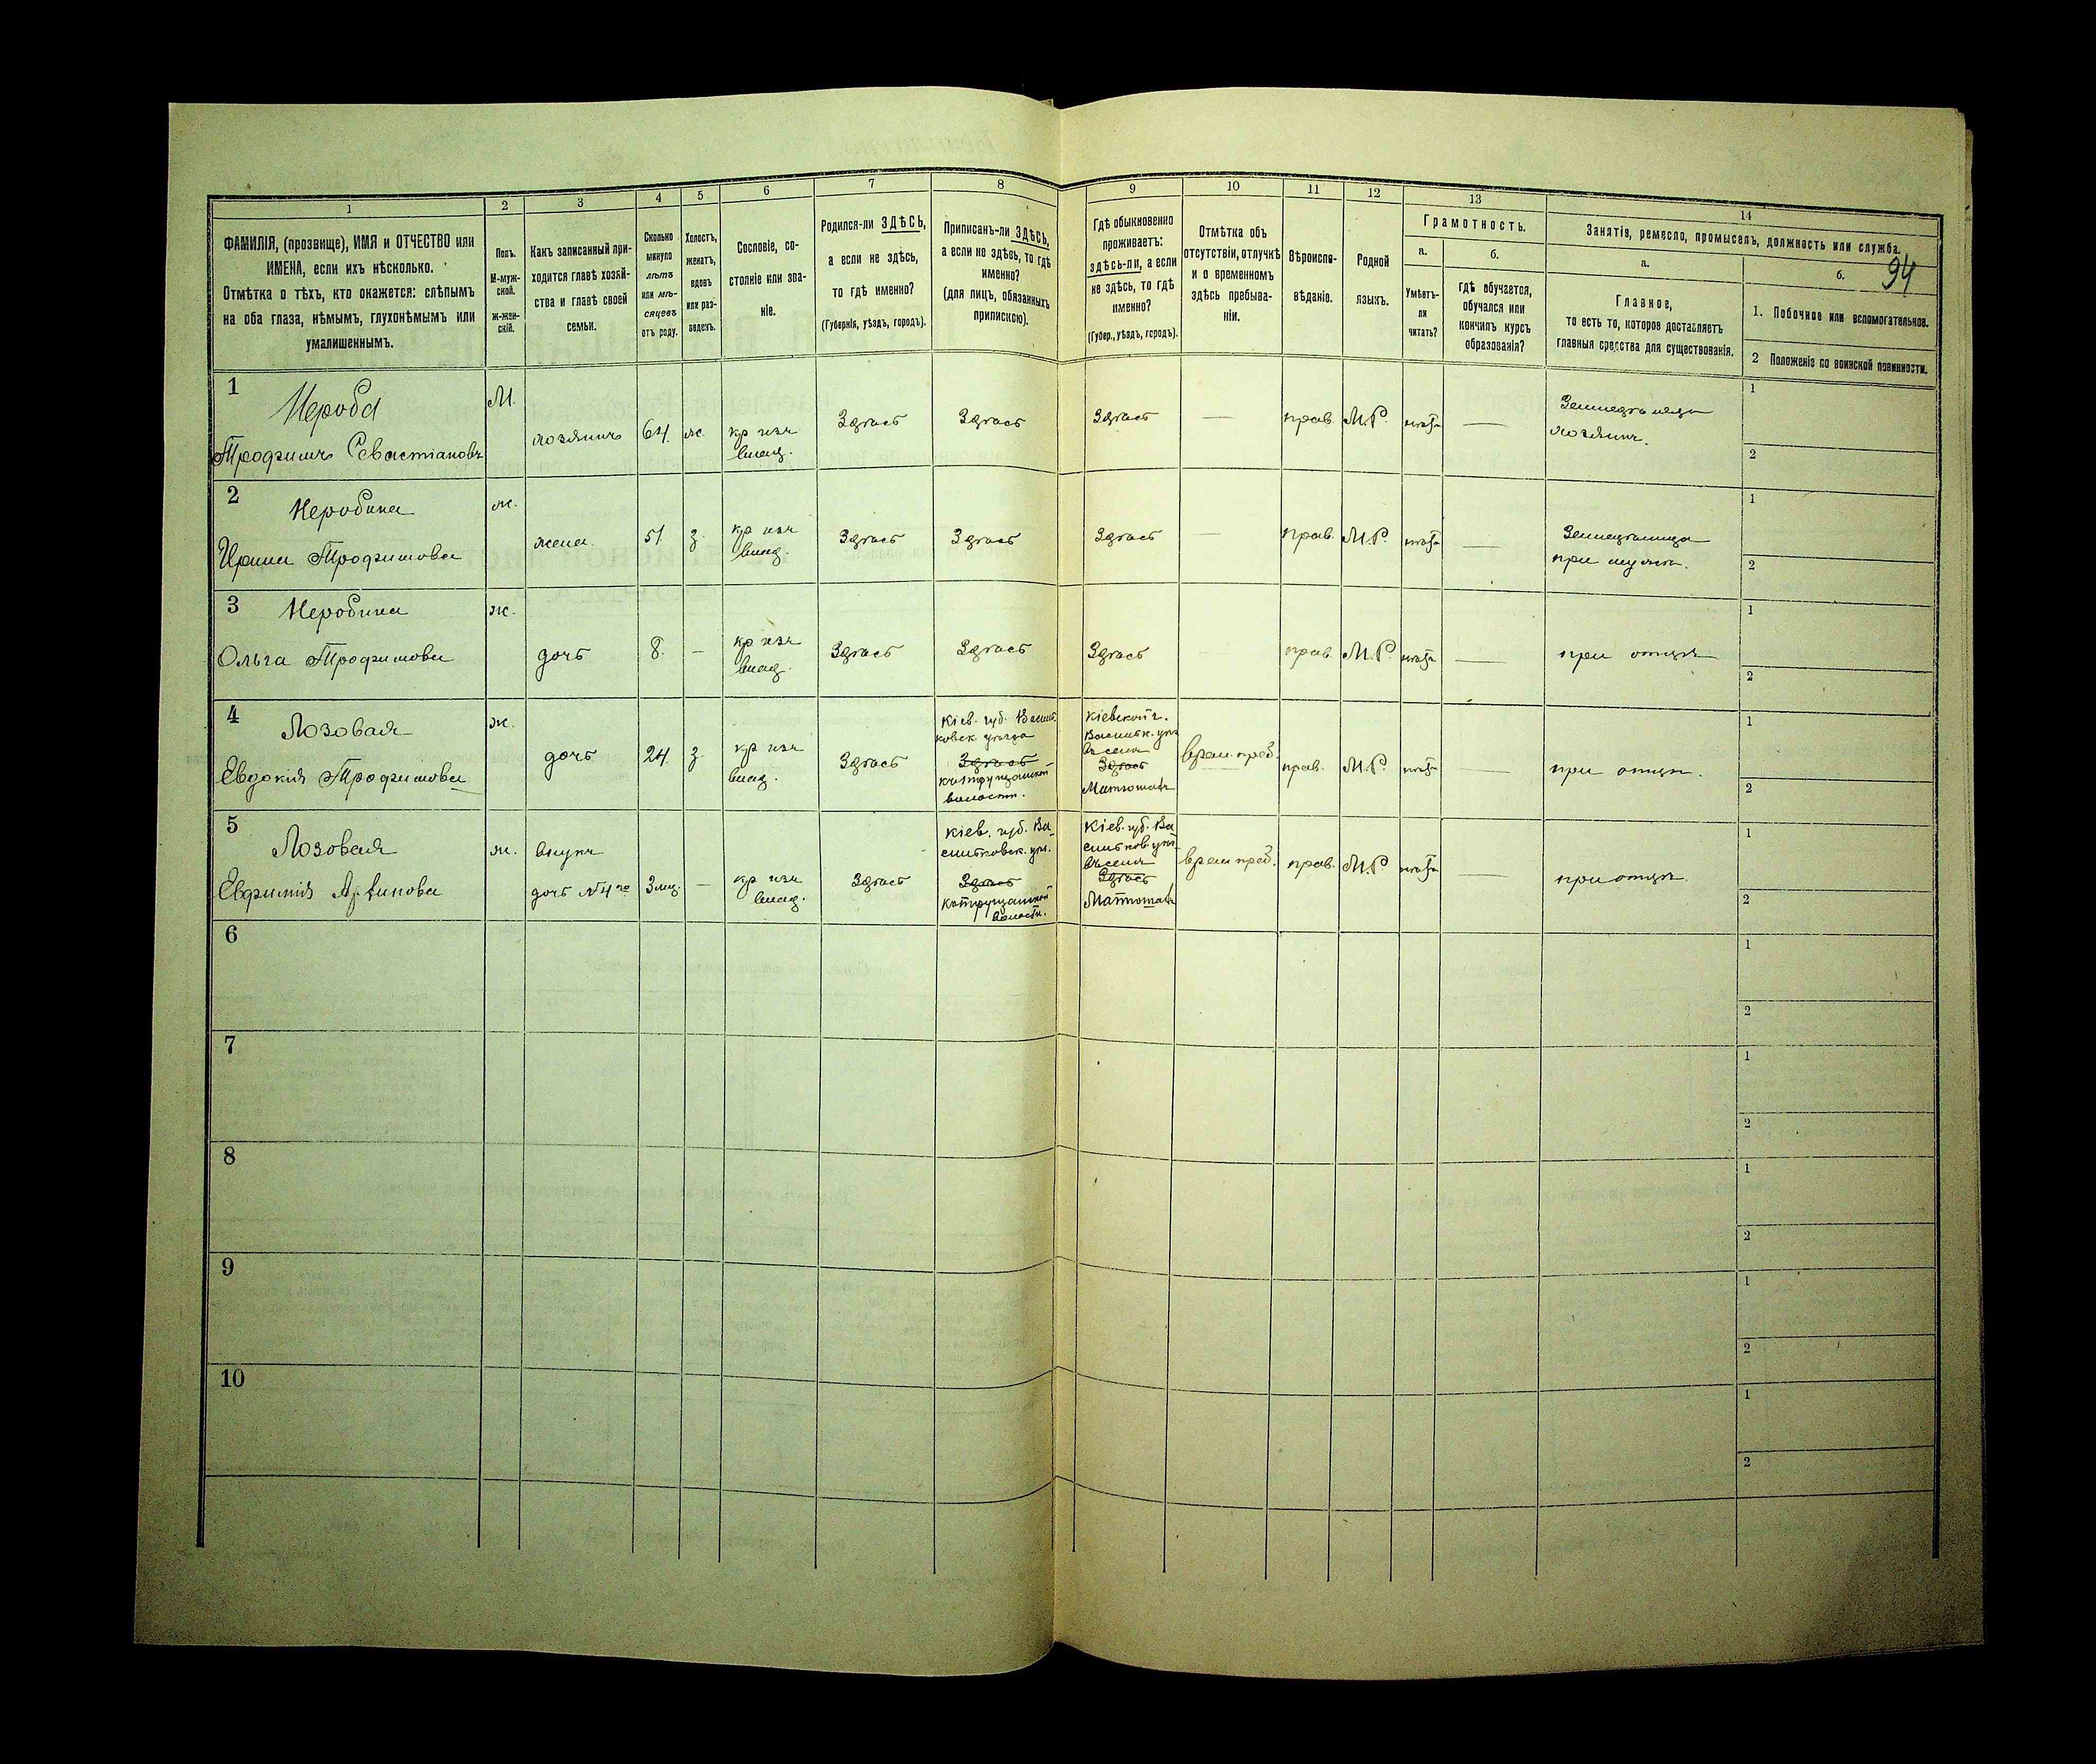 94
1
2
3
4
5
6
7
8
9
10
11
12
13
14
ФАМИЛІЯ, (прозвище), ИМЯ и ОТЧЕСТВО или
ИМЕНА, если ихъ нѣсколько.
Отмѣтка о тѣхъ, кто окажется: слѣпымъ
на оба глаза, нѣмымъ, глухонѣмымъ или
умалишеннымъ.
Полъ.
М-муж-
ской.
ж-жен-
скій.
Какъ записанный при-
ходится главѣ хозяй-
ства и главѣ своей
семьи.
Сколько
минуло
лѣтъ
или мѣ-
сяцевъ
отъ роду.
Холостъ,
женатъ,
вдовъ
или раз-
веденъ.
Сословіе, со-
стояніе или зва-
ніе.
Родился-ли ЗДѢСЬ,
а если не здѣсь,
то гдѣ именно?
(Губернія, уѣздъ, городъ).
Приписанъ-ли ЗДѢСЬ,
а если не здѣсь, то гдѣ
именно?
(для лицъ, обязанныхъ
припискою).
Гдѣ обыкновенно
проживаетъ:
здѣсь-ли, а если
не здѣсь, то гдѣ
именно?
(Губер., уѣздъ, городъ).
Отмѣтка объ
отсутствіи, отлучкѣ
и о временномъ
здѣсь пребыва-
ніи.
Вѣроиспо-
вѣданіе.
Родной
языкъ.
Грамотность.
а.
Умѣетъ-
ли
читать?
б.
гдѣ обучается,
обучался или
кончилъ курсъ
образованія?
Занятія, ремесло, промыселъ, должность или служба.
а.
Главное,
то есть то, которое доставляетъ
главныя средства для существованія.
б.
1. Побочное или вспомогательное.
2 Положеніе по воинской повинности.
1
Нероба
Трофимъ Севастіановъ
М.
хозяинъ
64.
ж.
кр изъ
влад.
Здѣсь
Здѣсь
Здѣсь
—
прав.
М.Р.
нѣтъ
—
Земледѣлецъ
хозяинъ.
1
2
2
Неробина
Ирина Трофимова
ж.
жена.
51
з.
кр изъ
влад.
Здѣсь
Здѣсь
Здѣсь
—
прав.
М.Р.
нѣтъ
—
при мужѣ.
1
2
3
Неробина
Ольга Трофимова
ж.
дочь
8.
—
кр изъ
влад.
Здѣсь
Здѣсь
Здѣсь
прав.
М.Р.
нѣтъ
—
при отцѣ
1
2
4
Лозовая
Евдокія Трофимова
ж.
дочь
24.
з.
кр изъ
влад.
Здѣсь
Кіев. губ. Василь
ковск. уѣзда
Здѣсь
волости.
Кіевской г.
Васильк. уѣз
въ селѣ
Здѣсь
врем. преб.
прав.
М.Р.
нѣтъ
—
при отцѣ.
1
2
5
Лозовая
Евфимія
ж.
внука
дочь №4го
3 мц.
—
кр изъ
влад.
Здѣсь
Кіев. губ. Ва
сильковск. уѣз.
Здѣсь
волости.
Кіев. губ. Ва
сильков уѣз
въ селѣ
Здѣсь
врем преб.
прав.
М.Р
нѣтъ
—
при отцѣ.
1
2
6
1
2
7
1
2
8
1
2
9
1
2
10
1
2